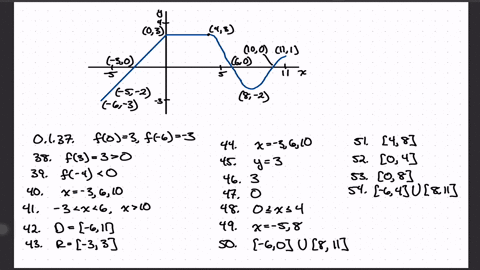 y
4
(0,3)
(4,3)
(-3,0)
(6,0)
(10,0)
(11,1)
-5
5
11
x
(-5,-2)
(-6,-3)
(8,-2)
-3
0.1.37. f(0)=3, f(-6)=-3
38. f(3)=3>0
39. f(-4)<0
40. x=-3,6,10
41. -3<x<6, x>10
42. D=[-6,11]
43. R=[-3,3]
44. x=-3,6,10
45. y=3
46. 3
47. 0
48. 0≤x≤4
49. x=-5,8
50. [-6,0]∪[8,11]
51. [4,8]
52. [0,4]
53. [0,8]
54. [-6,4]∪[8,11]